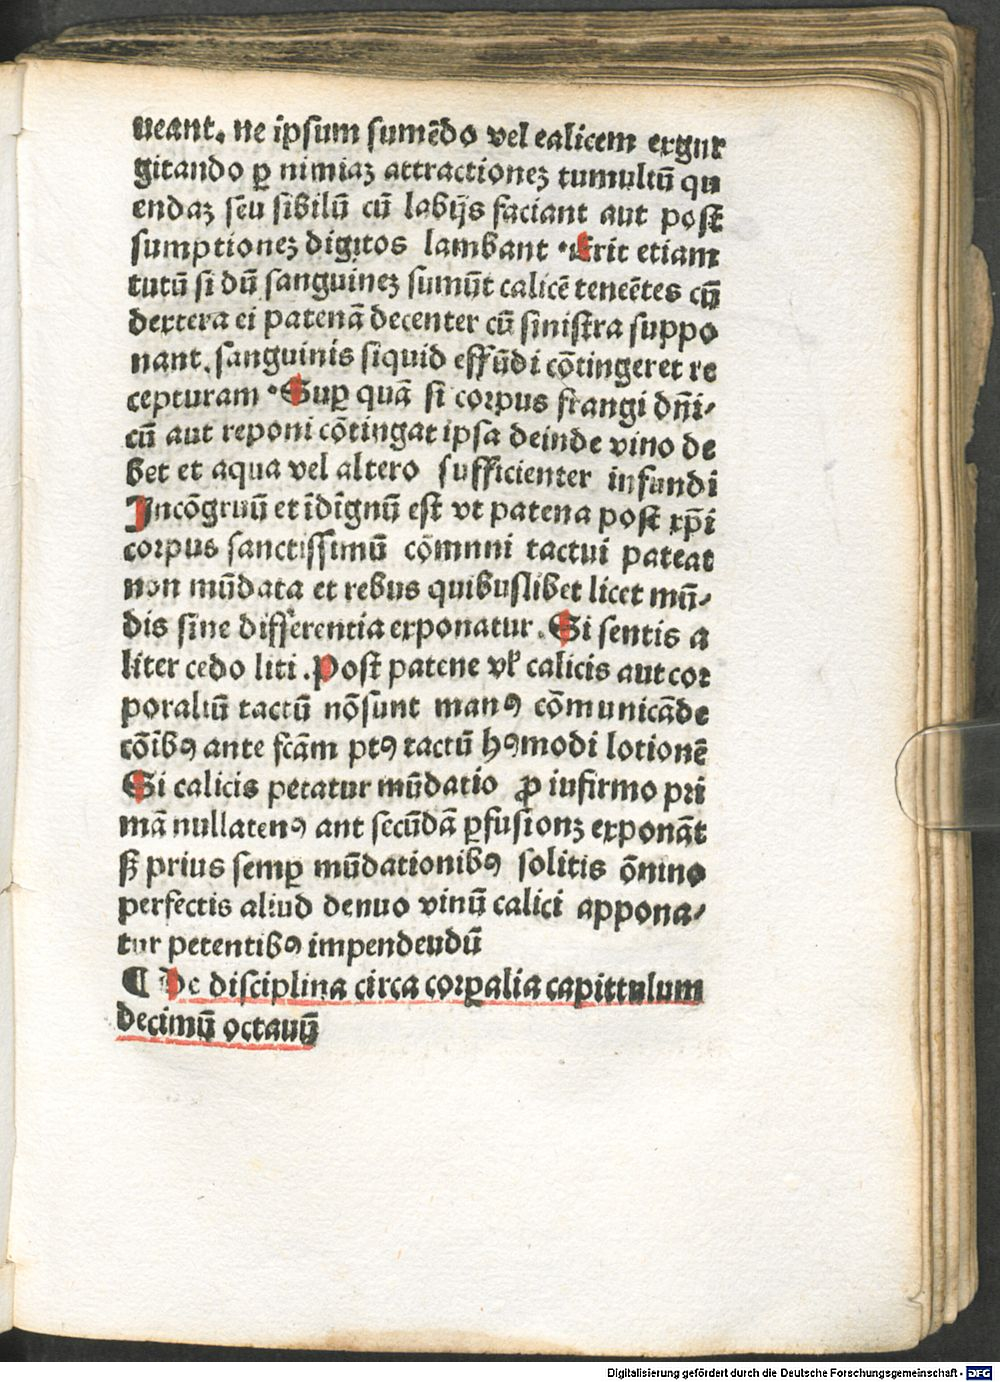 ueant. ne ipsum sumēdo vel ealicem exgur
gitando ꝑ nimiaꝫ attractioneꝫ tumultū qu
endaꝫ seu sibilū cū labijs faciant aut post
sumptioneꝫ digitos lambant · Erit etiam
tutū si dū sanguineꝫ sumūt calicē teneētes cū
dextera ei patenā decenter cū sinistra suppo
nant. sanguinis siquid effūdi cōtingeret re
cepturam · Suꝑ quā si corpus frangi dn̄i⸗
cū aut reponi cōtingat ipsa deinde vino de
bet et aqua vel altero sufficienter infundi
Incōgruū et īdīgnū est vt patena post xp̄i
corpus sanctissimū cōmnni tactui pateat
non mūdata et rebus quibuslibet licet mū⸗
dis sine differentia exponatur. Si sentis a
liter cedo liti. Post patene vl̕ calicis aut cor
poraliū tactū nōsunt manꝰ cōmunicāde
cōibꝰ ante fcām ptꝰ tactū hꝰmodi lotionē
Si calicis petatur mūdatio ꝓ iufirmo pri
mā nullatenꝰ ant secūdā ꝑfusionꝫ exponāt
ꝭ prius semꝑ mūdationibꝰ solitis ōnino
perfectis aliud denuo vinū calici appona⸗
tur petentibꝰ impendeudū
¶ De disciplina circa corꝑalia capittulum
decimū octauū
Digitalisierung gefördert durch die Deutsche Forschungsgemeinschaft - DFG